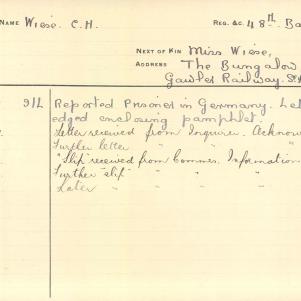 NAME Wiese. C.H. REG. &C. 48th. Ba
NEXT OF KIN Miss Wiese,
ADDRESS The Bungalow
Gawler Railway. St
9/L Reported Prisoner in Germany. Let
edged enclosing pamphlet.
Letter received from Inquirer. Acknow
Further letter " " "
"Slip" received from Commrs. Information
Further "slip" " "
Later " " "